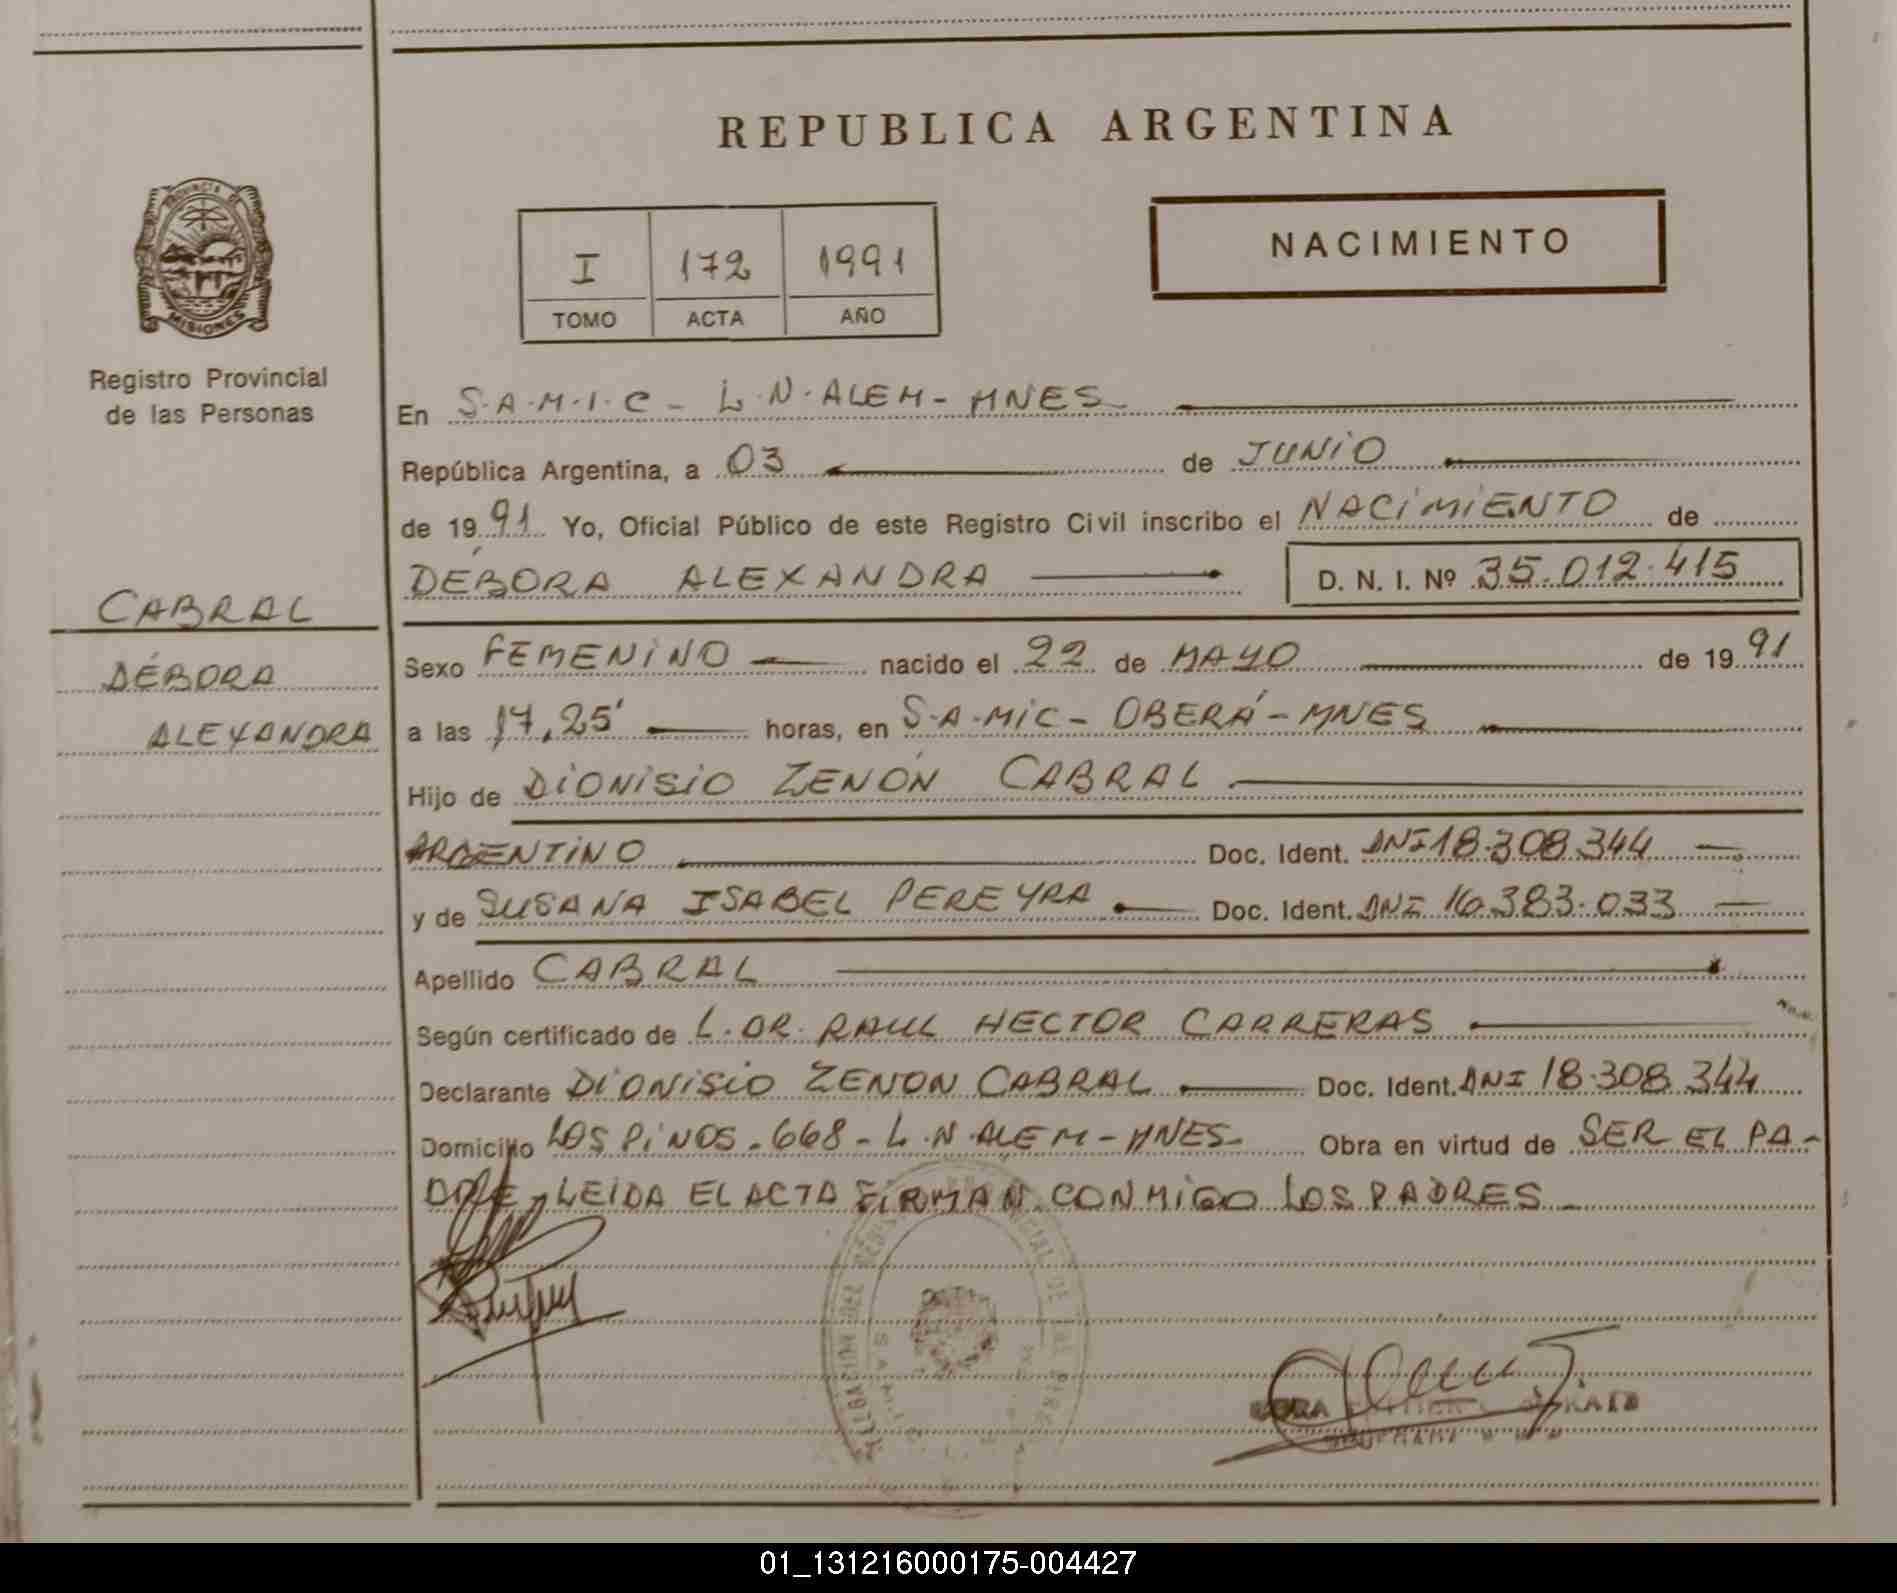 REPUBLICA ARGENTINA
PROVINCIA DE
MISIONES
Registro Provincial
de las Personas
I 172 1991
TOMO ACTA AÑO
NACIMIENTO
En S.A.M.I.C - L.N.ALEM - MNES
República Argentina, a 03 de JUNIO
de 1991 Yo, Oficial Público de este Registro Civil inscribo el NACIMIENTO de
DÉBORA ALEXANDRA D. N. I. Nº 35.012.415
CABRAL
DÉBORA
ALEXANDRA
Sexo FEMENINO nacido el 22 de MAYO de 1991
a las 17,25' horas, en S.A.MIC - OBERÁ - MNES
Hijo de DIONISIO ZENÓN CABRAL
ARGENTINO Doc. Ident. DNI 18.308.344
y de SUSANA ISABEL PEREYRA Doc. Ident. DNI 16.383.033
Apellido CABRAL
Según certificado de L. DR. RAUL HECTOR CARRERAS
Declarante DIONISIO ZENON CABRAL Doc. Ident. DNI 18.308.344
Domicilio LOS PINOS - 668 - L.N.ALEM - MNES - Obra en virtud de SER EL PA-
DRE, LEIDA EL ACTA FIRMAN CONMIGO LOS PADRES
01_131216000175-004427